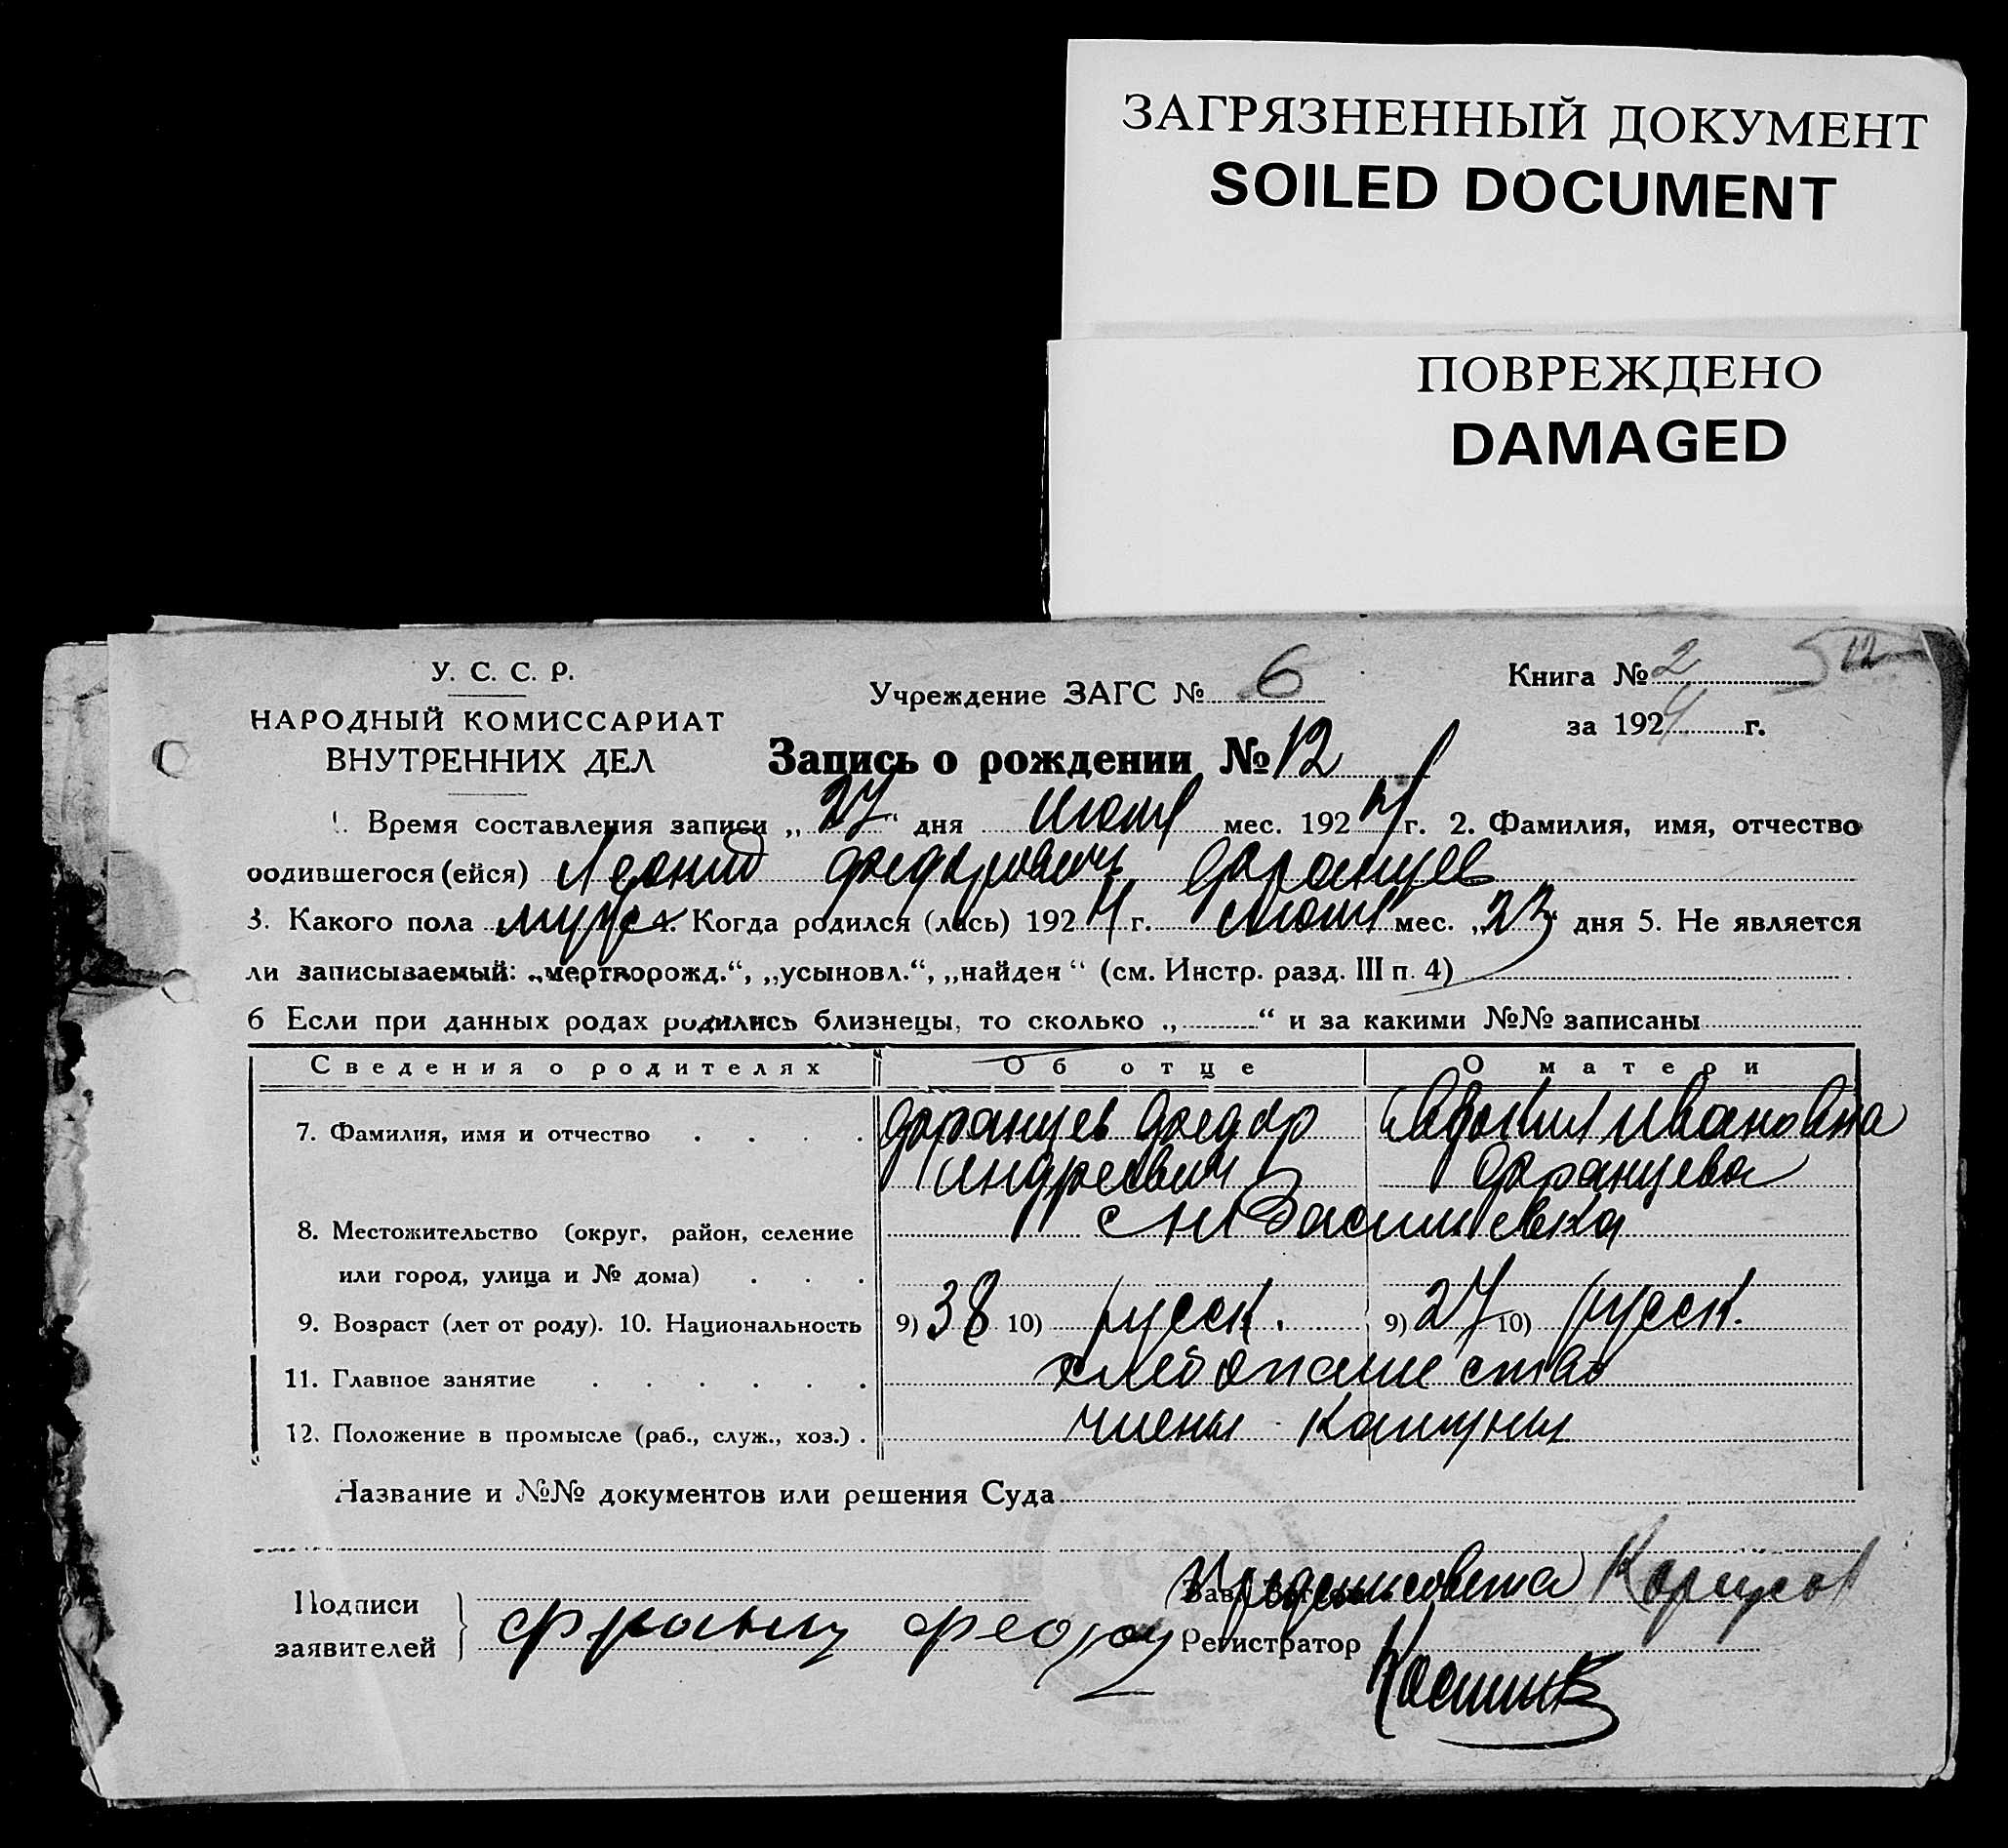 ЗАГРЯЗНЕННЫЙ ДОКУМЕНТ
SOILED DOCUMENT
ПОВРЕЖДЕНО
DAMAGED
У. С. С. Р.
НАРОДНЫЙ КОМИССАРИАТ
ВНУТРЕННИХ ДЕЛ
Учреждение ЗАГС № 6
Книга № 2
за 1924 г.
Запись о рождении № 12
1. Время составления записи „27“ дня июля мес. 1924 г. 2. Фамилия, имя, отчество
родившегося (ейся) Леонид Федорович Францев
3. Какого пола муж 4. Когда родился (лась) 1924 г. июля мес. „23“ дня 5. Не является
ли записываемый: „мертворожд.“, „усыновл.“, „найден“ (см. Инстр. разд. III п. 4)
6 Если при данных родах родились близнецы, то сколько „ “ и за какими №№ записаны
Сведения о родителях Об отце О матери
7. Фамилия, имя и отчество Францев Федор Евдокия Ивановна
Андреевич Францева
8. Местожительство (округ, район, селение Васильевка
или город, улица и № дома)
9. Возраст (лет от роду). 10. Национальность 9) 38 10) русск. 9) 27 10) русск.
11. Главное занятие хлебопашество
12. Положение в промысле (раб., служ., хоз.) члены комуны
Название и №№ документов или решения Суда
Подписи
заявителей
Франц Федор
Предсельсовета
Регистратор